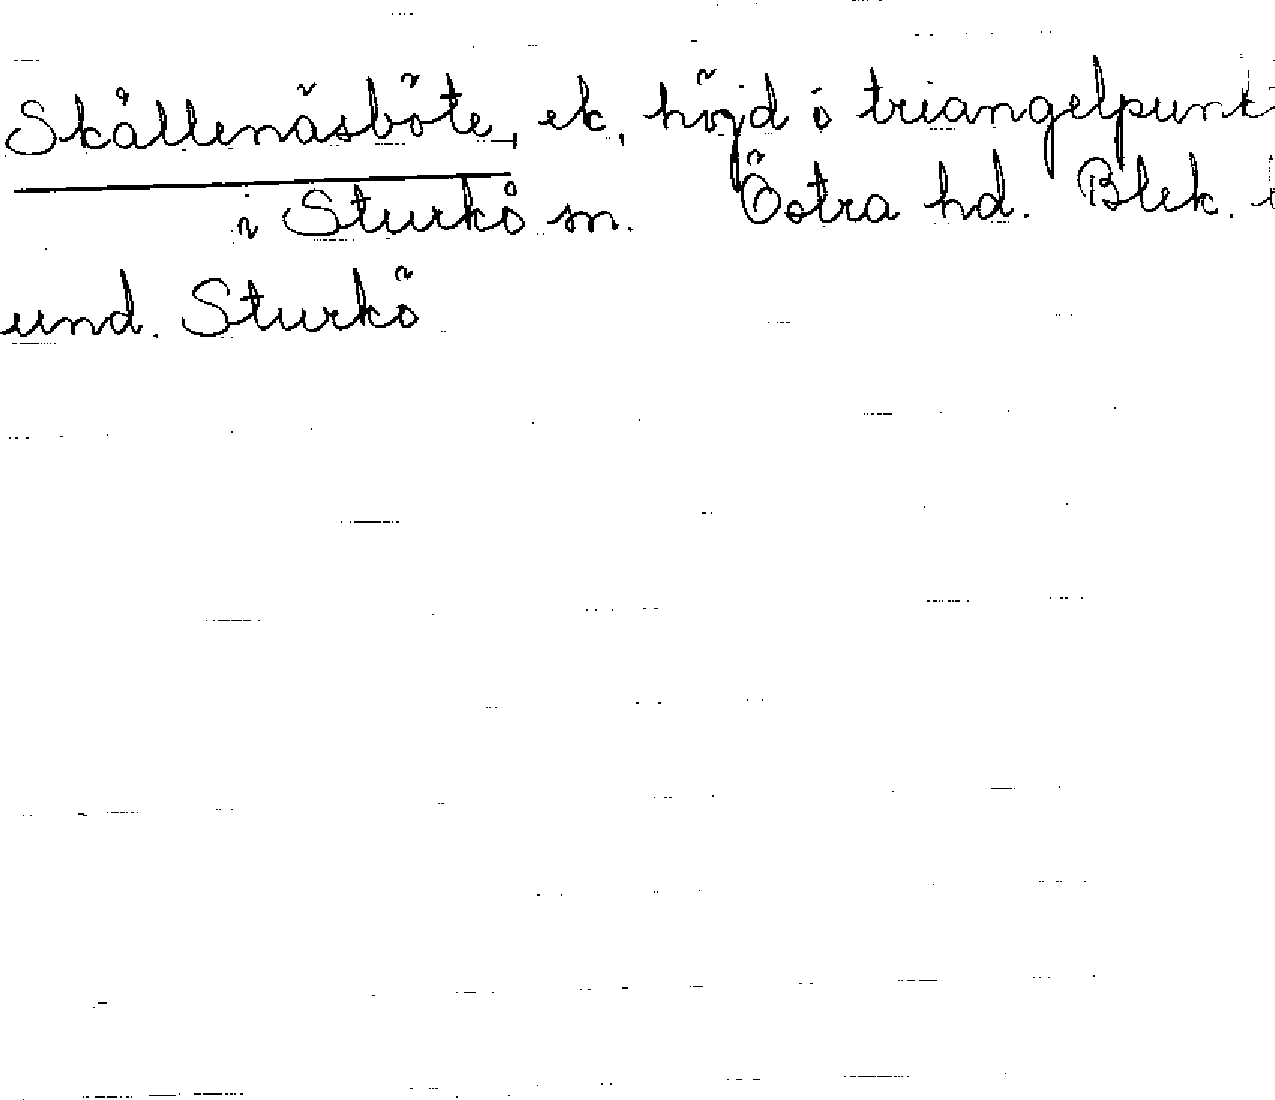 Skållenäsböte, ek, höjd ó triangelpunkt
i Sturkö sn. Östra hd. Blek.
und. Sturkö